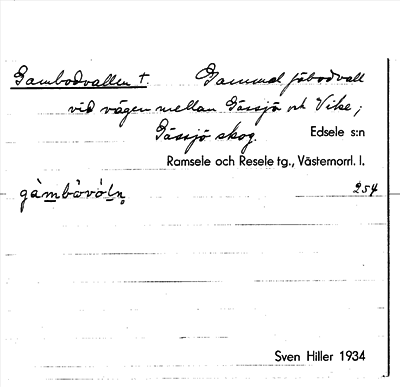 Gambodvallen t. Gammal fäbodvall
vid vägen mellan Gåssjö och Vike;
Gåssjö skog. Edsele s:n
Ramsele och Resele tg., Västernorrl. l.
254
Sven Hiller 1934